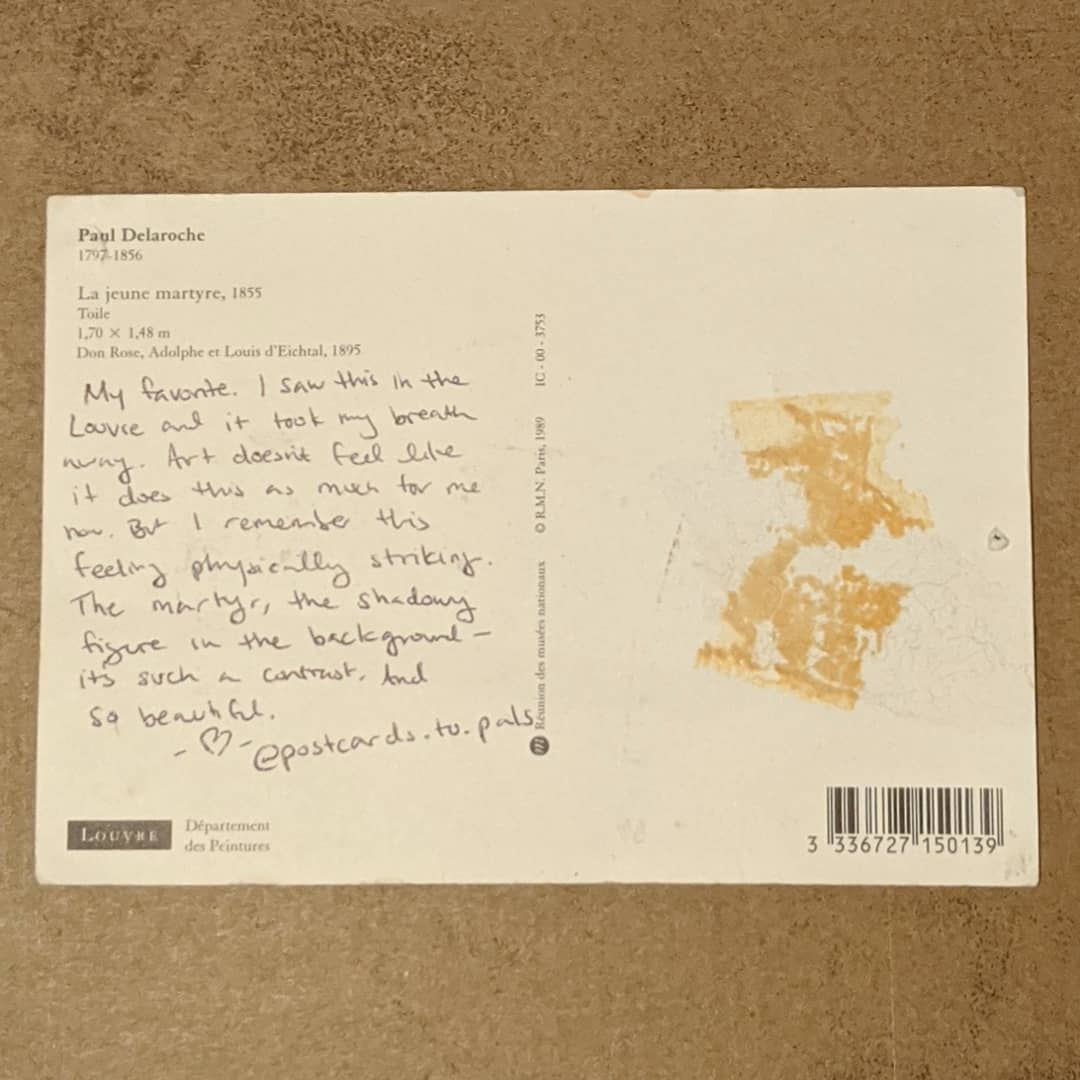 Paul Delaroche
1797-1856
La jeune martyre, 1855
Toile
1,70 × 1,48 m
Don Rose, Adolphe et Louis d'Eichtal, 1895
My favorite. I saw this in the
Louvre and it took my breath
away. Art doesn't feel like
it does this as much for me
now. But I remember this
feeling physically striking.
The martyr, the shadowy
figure in the background –
it's such a contrast. And
so beautiful.
- ♡ - @postcards.to.pals
LOUVRE
Département
des Peintures
Réunion des musées nationaux © R.M.N. Paris, 1989 IC - 00 - 3753
3 336727 150139